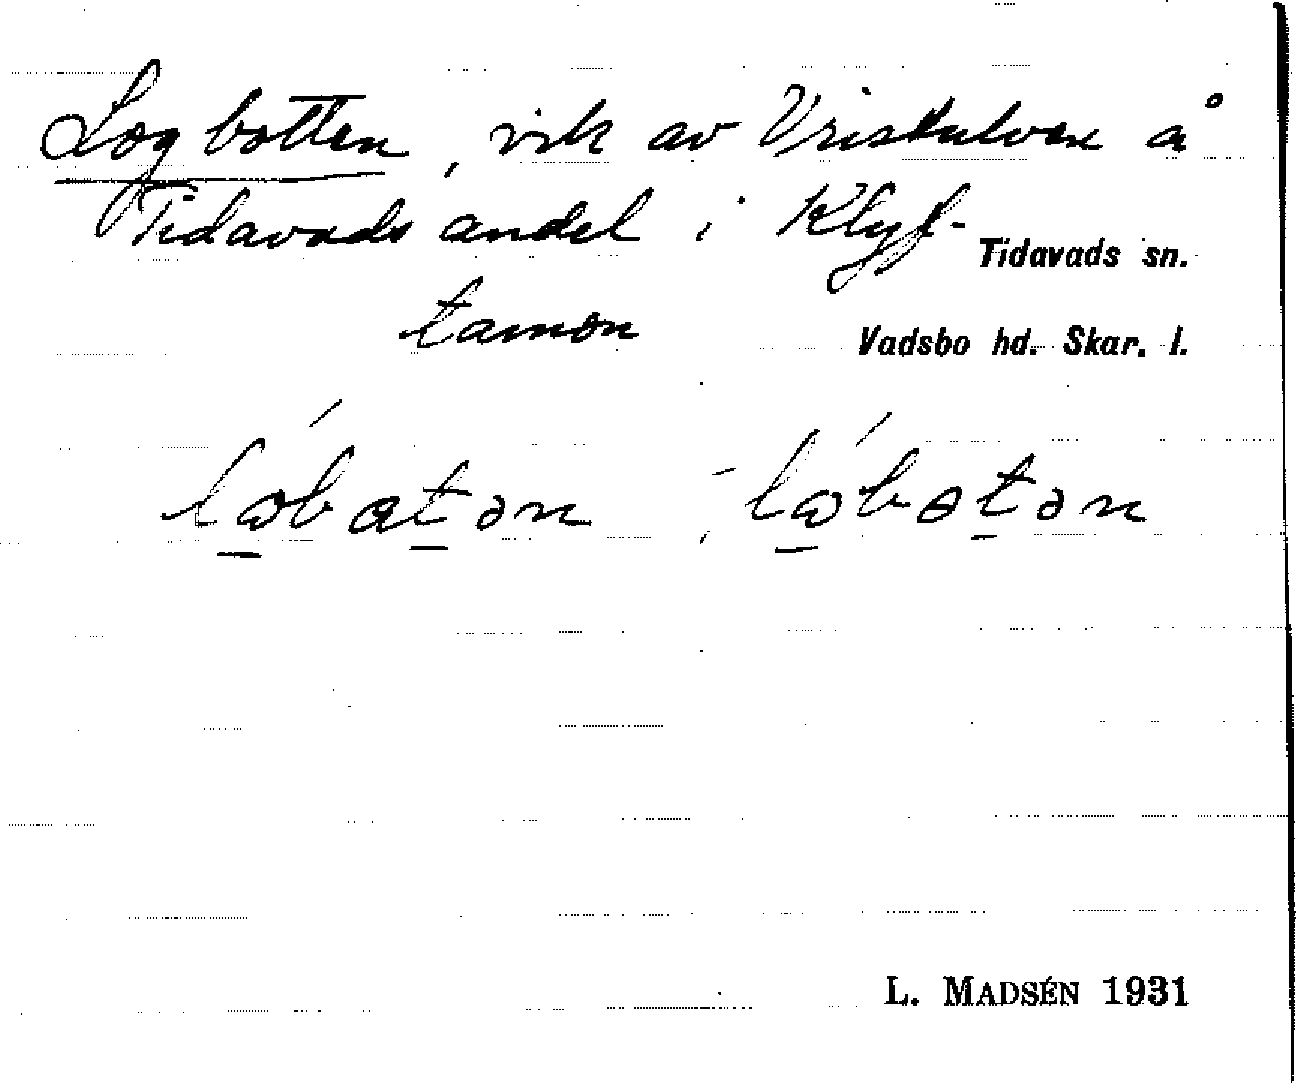 Logbotten, vik av Vristulven å
Tidavads andel i Klyf-
Tidavads sn.
tamon
Vadsbo hd. Skar. l.
L. MADSÉN 1931